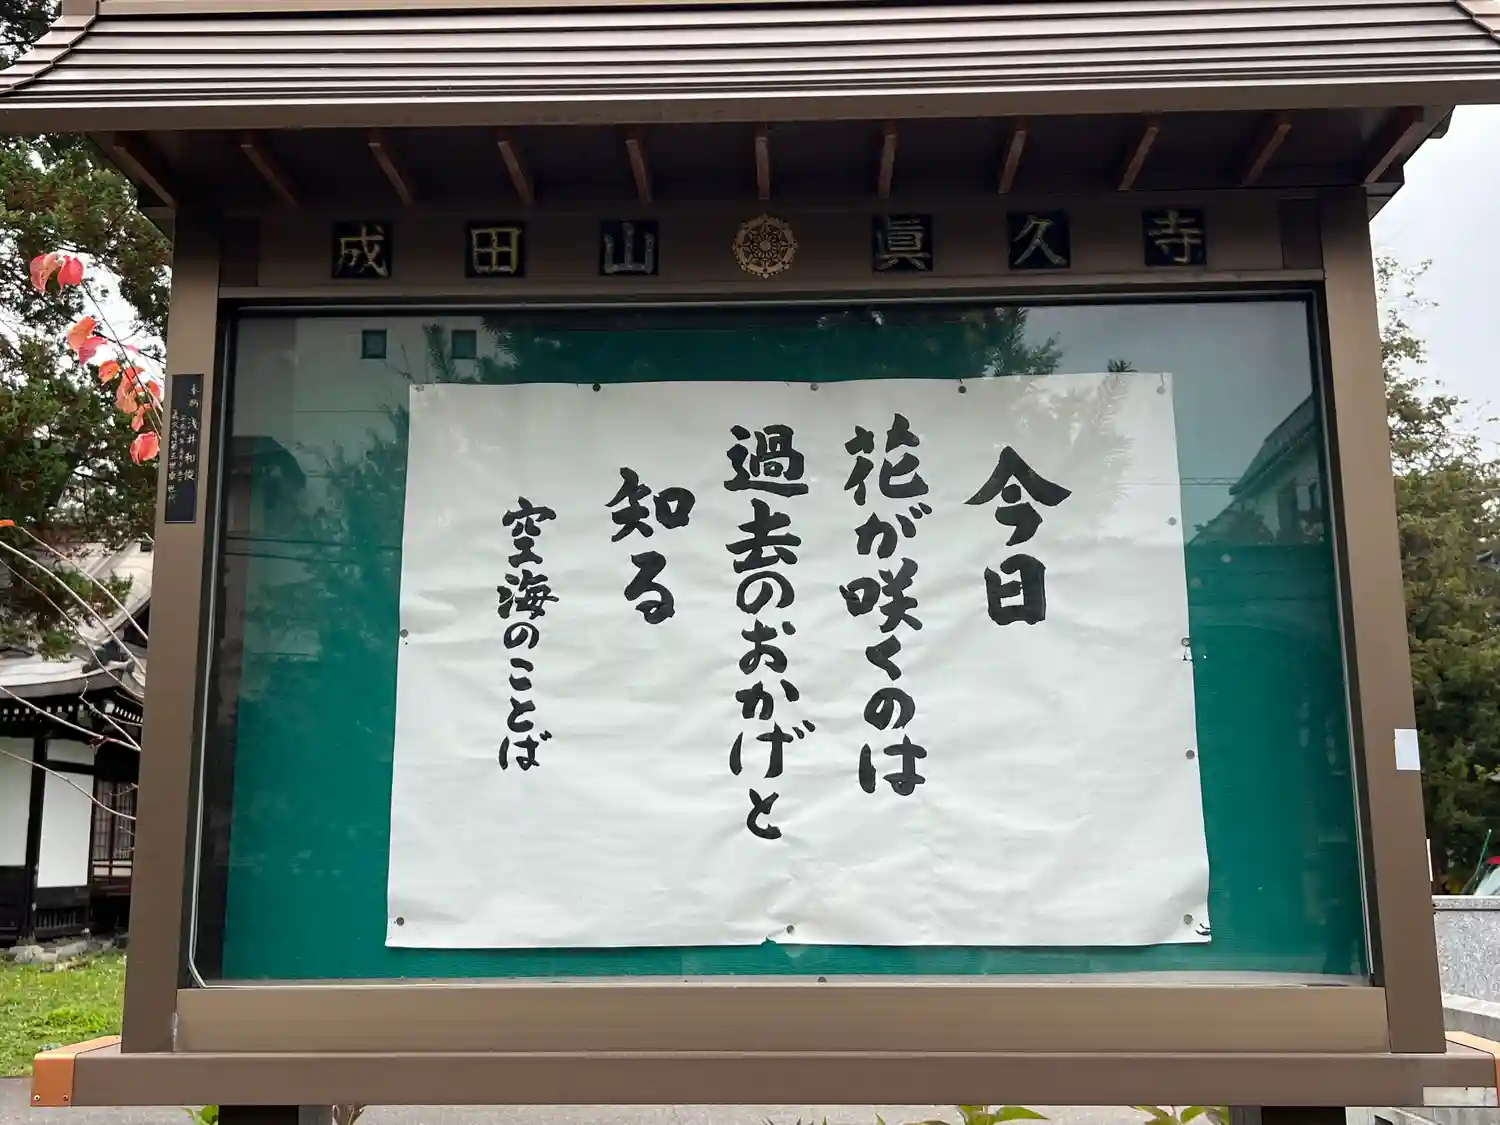 成田山 眞久寺
今日
花が咲くのは
過去のおかげと
知る
空海のことば
奉納 浅井和俊